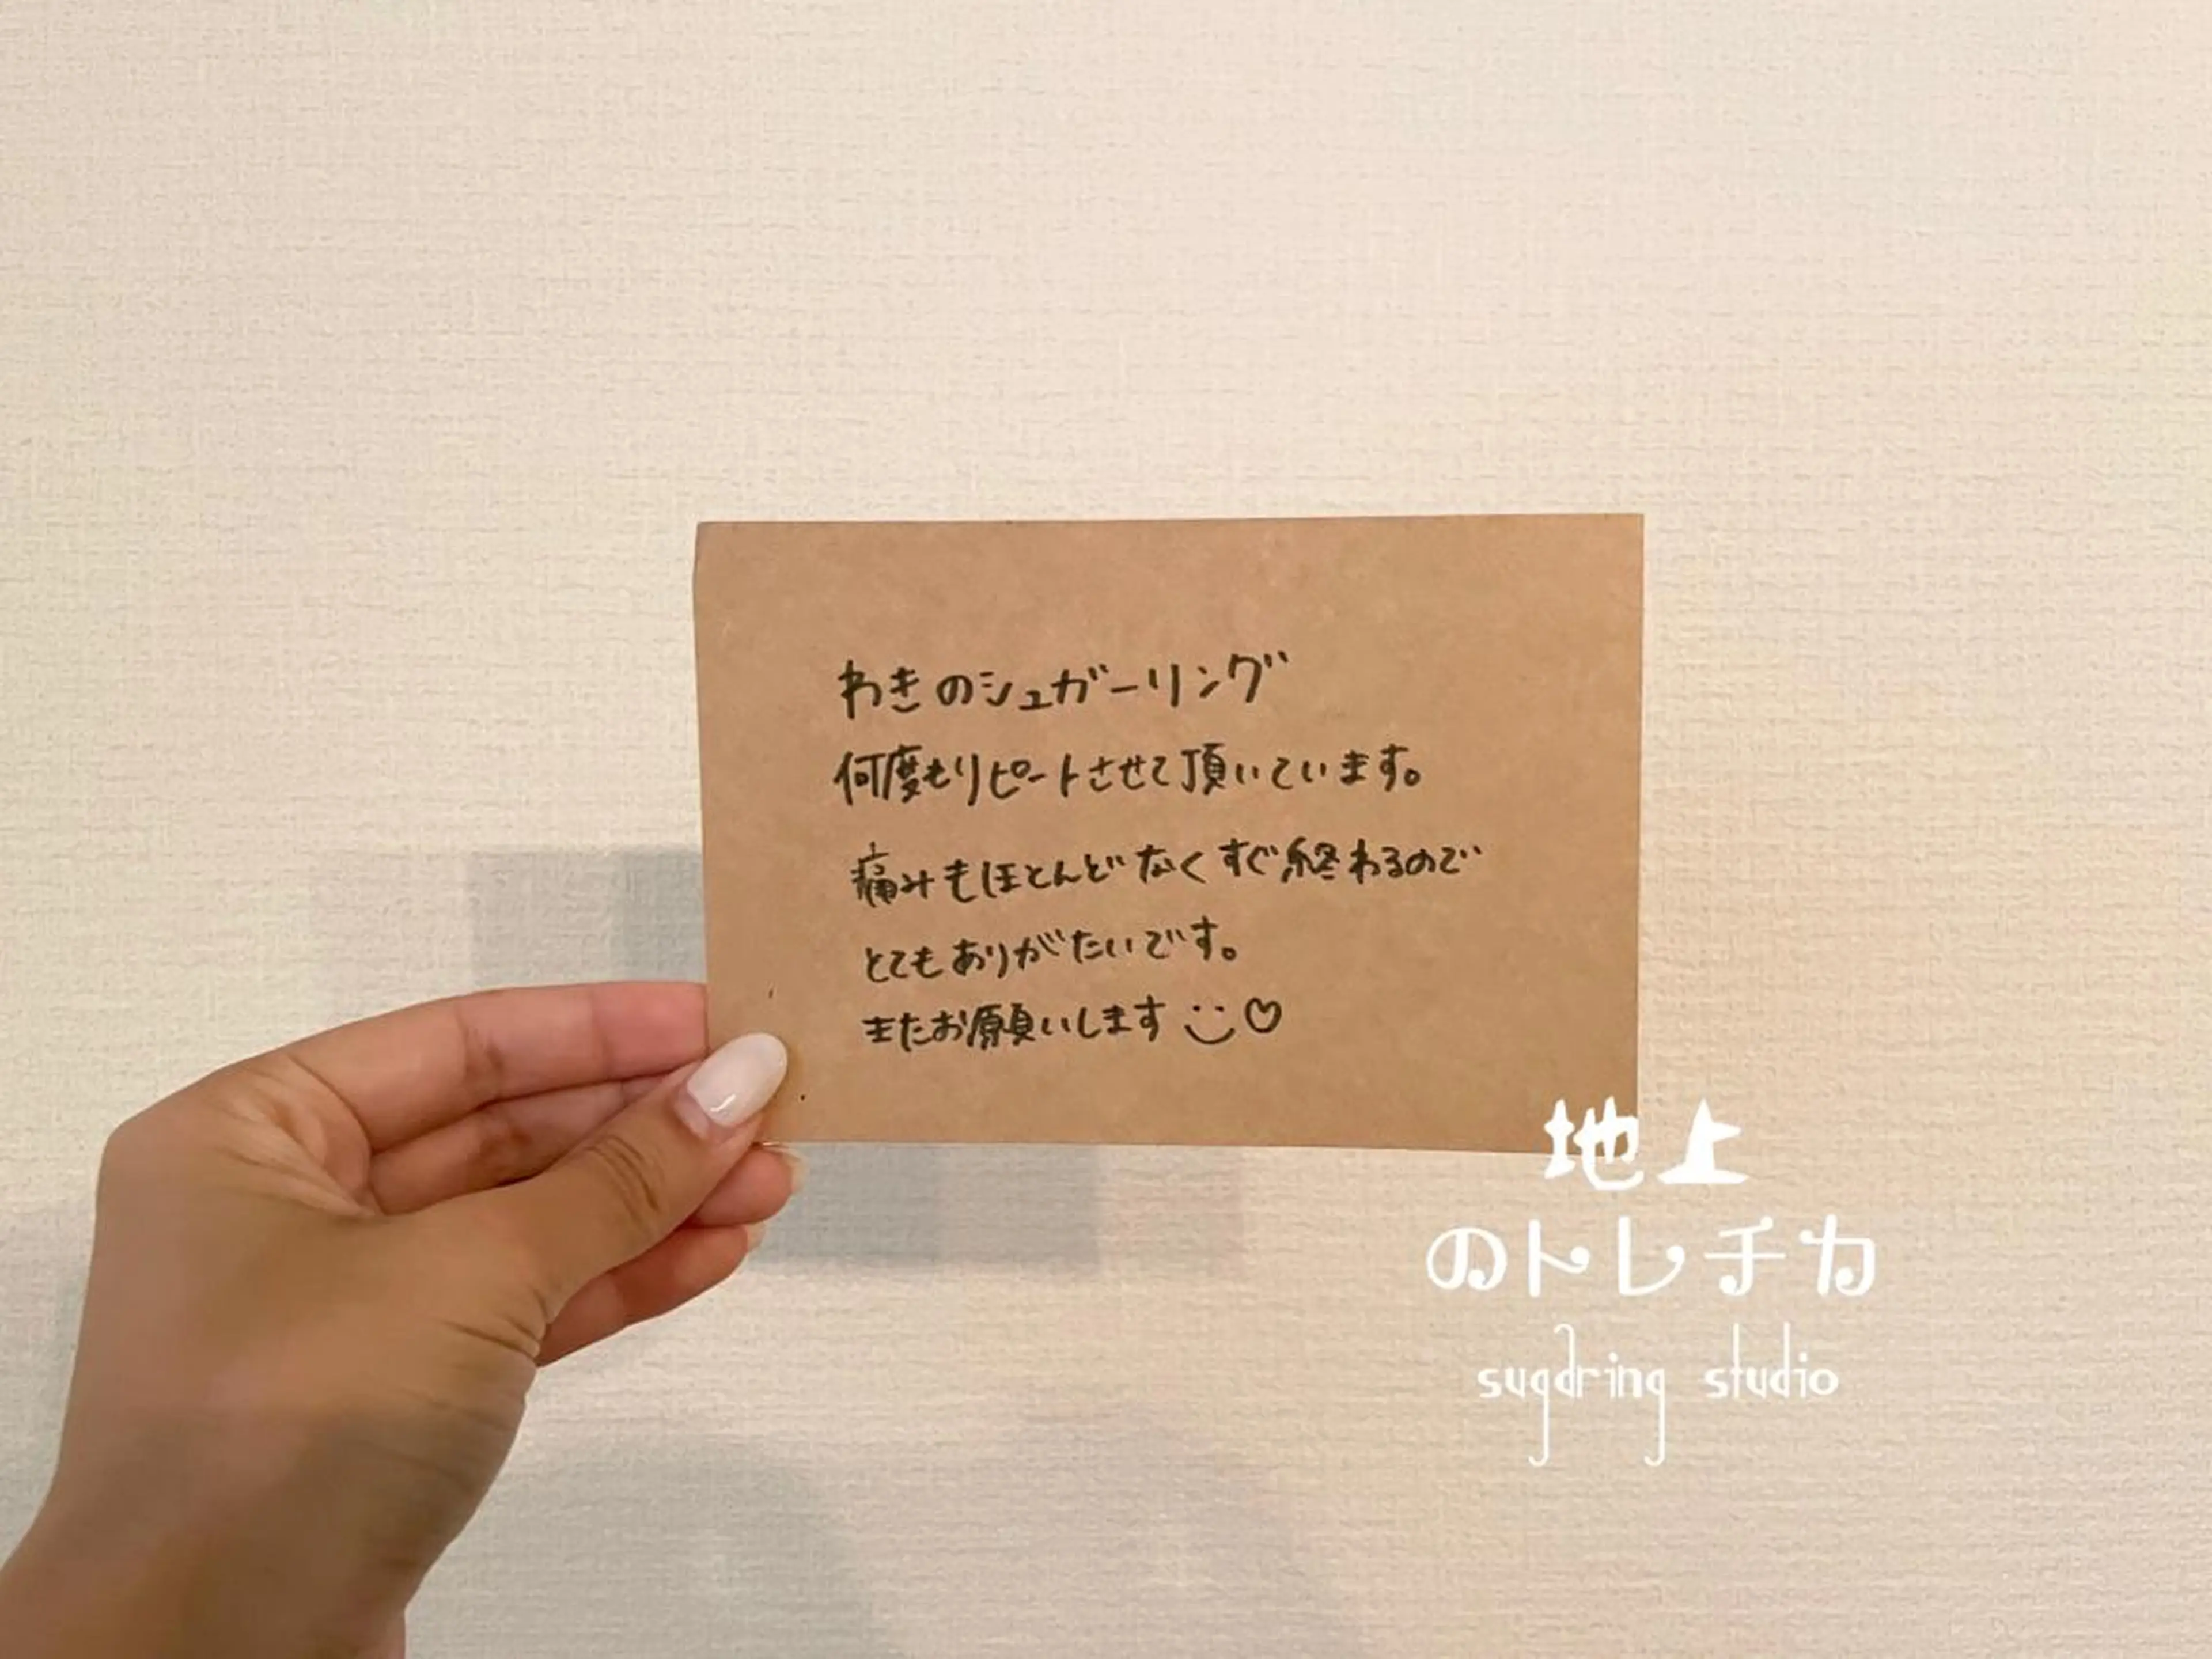 わきのシュガーリング
何度もリピートさせて頂いています。
痛みもほとんどなくすぐ終わるので
とてもありがたいです。
またお願いします♡
地上
のトレチカ
sugaring studio